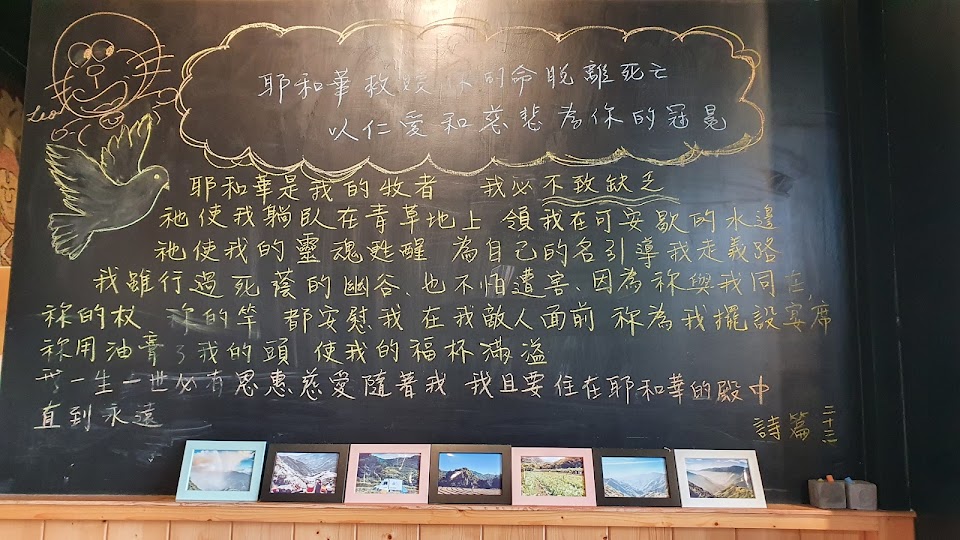 耶和華救贖你的命脫離死亡
以仁愛和慈悲為你的冠冕
耶和華是我的牧者 我必不致缺乏
祂使我躺臥在青草地上 領我在可安歇的水邊
祂使我的靈魂甦醒 為自己的名引導我走義路
我雖行過死蔭的幽谷、也不怕遭害、因為祢與我同在,
祢的杖 祢的竿 都安慰我 在我敵人面前 祢為我擺設宴席
祢用油膏了我的頭 使我的福杯滿溢
我一生一世必有恩惠慈愛隨著我 我且要住在耶和華的殿中
直到永遠
詩篇二十三